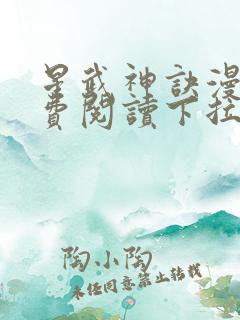 星武神訣漫
費閱讀下拉
陶小陶
未經同意禁止轉載